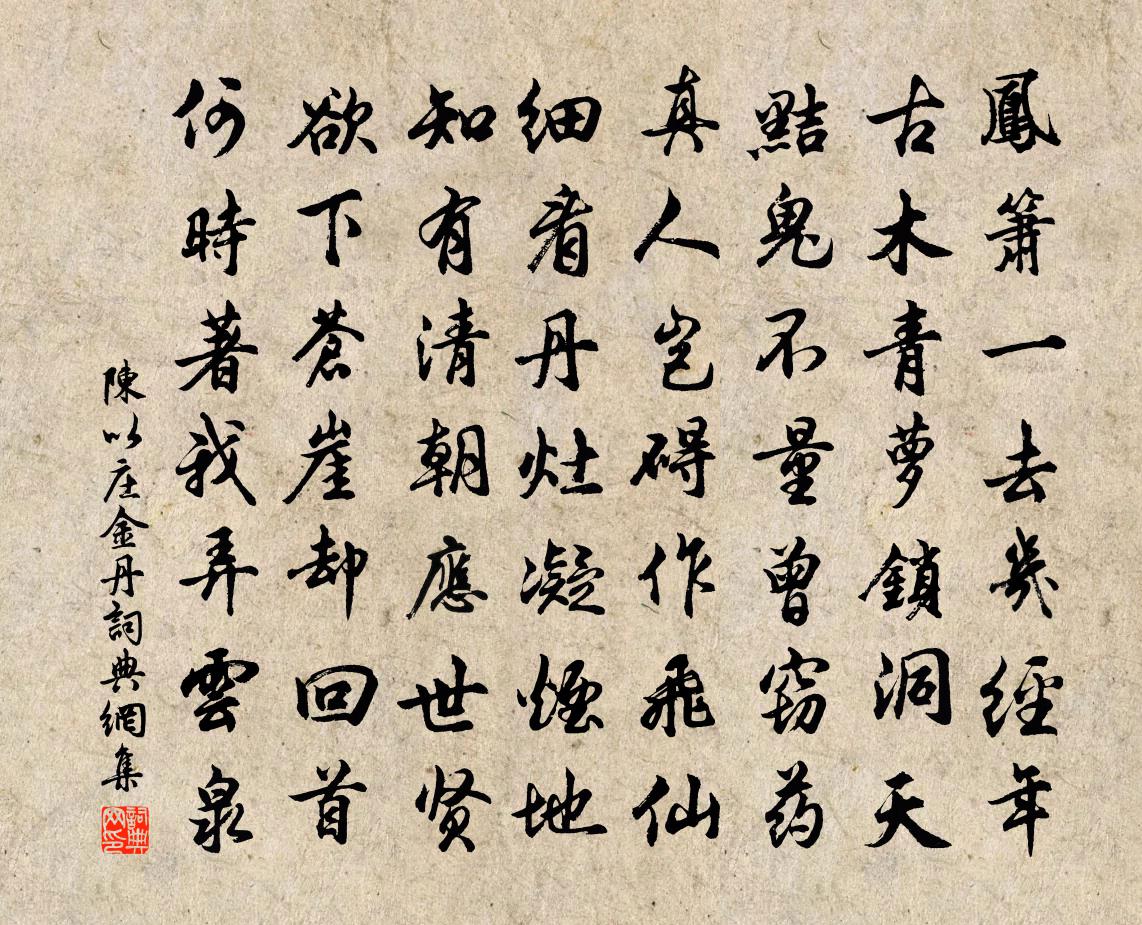 鳳簫一去幾經年
古木青萝鎖洞天
黠鬼不量曾窃药
真人岂碍作飛仙
细看丹灶凝煙地
知有清朝應世贤
欲下苍崖却回首
何時著我弄雲泉
陳以庄金丹詞典網集
詞典網印